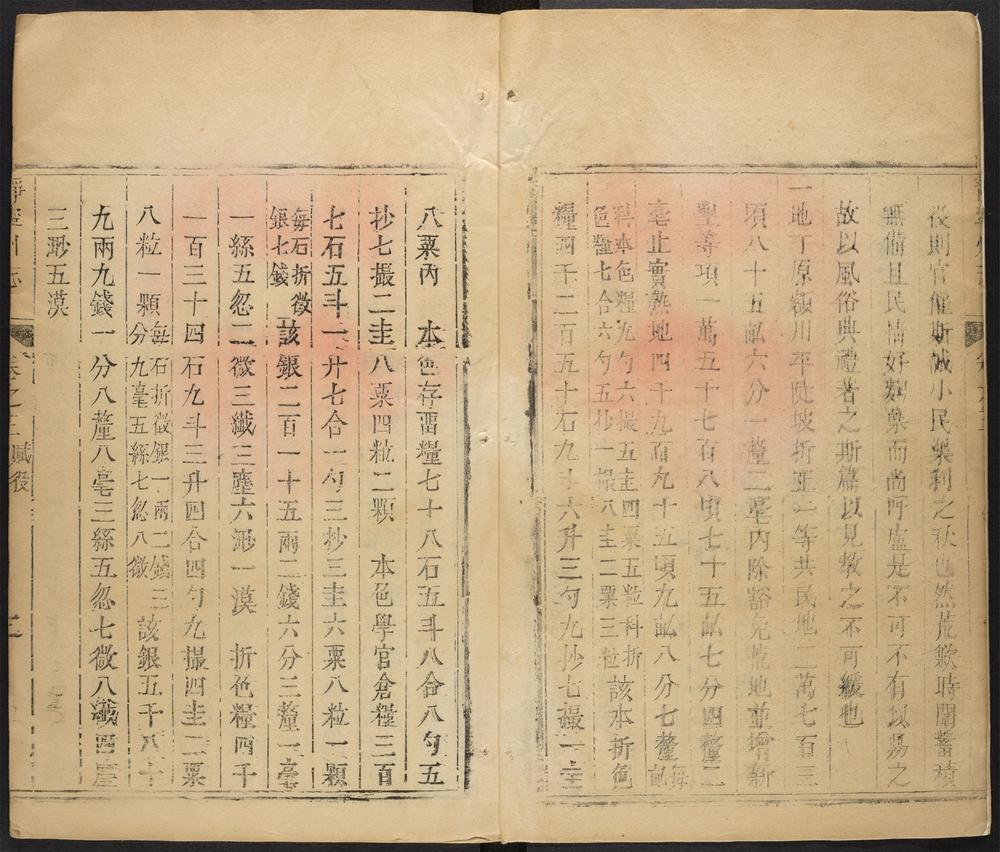 役則官僱斯誠小民樂利之秋也然荒歉時聞蓄積
無備且民情好
故以風俗典禮者之斯篇以見教之不可緩也
一地丁原額川平陡坡折正一等共民地二萬七百二
頃八十五畝六分一釐二毫內除豁免荒地並增新
墾等項一萬五千七百八頃七十五畝七分四釐二
毫止實熟地四千九百九十五頃九畝八分七釐每畝
科本色糧九勺六撮五圭四粟五粒科折
色糧七合六勺五抄一撮八圭二粟三粒該本折色
糧四千二百五十石九斗六升三勺九抄七撮一圭
八粟內 本色存留糧七十八石五斗八合八勺五
抄七撮二圭八粟四粒二顆 本色學官倉糧三百
七石五斗一升七合一勺三抄三圭六粟八粒一顆
每石折徵
銀七錢該銀二百一十五兩二錢六分三釐一毫
一絲五忽二微三纖三塵六渺一漠 折色糧四千
一百三十四石九斗三升四合四勺九撮四圭二粟
八粒一顆每石折徵銀一兩二錢三
分九毫五絲七忽八微該銀五千八十
九兩九錢一分八釐八毫三絲五忽七微八纖四塵
三渺五漠
靜寧州志 卷之三 賦役 二